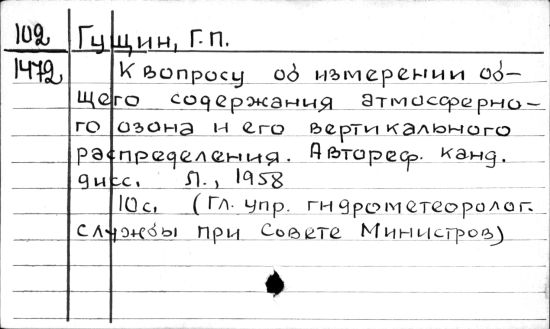 102 Гущин, Г.П.
1472 К вопросу об измерении об-
щего содержания атмосферно-
го озона и его вертикального
распределения. Автореф. канд.
дисс. Л., 1958
10с. (Гл. упр. гидрометеоролог.
службы при Совете Министров)